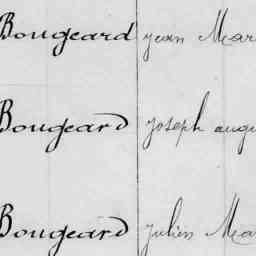 Bougeard jean Mar
Bougeard joseph augu
Bougeard julien Ma